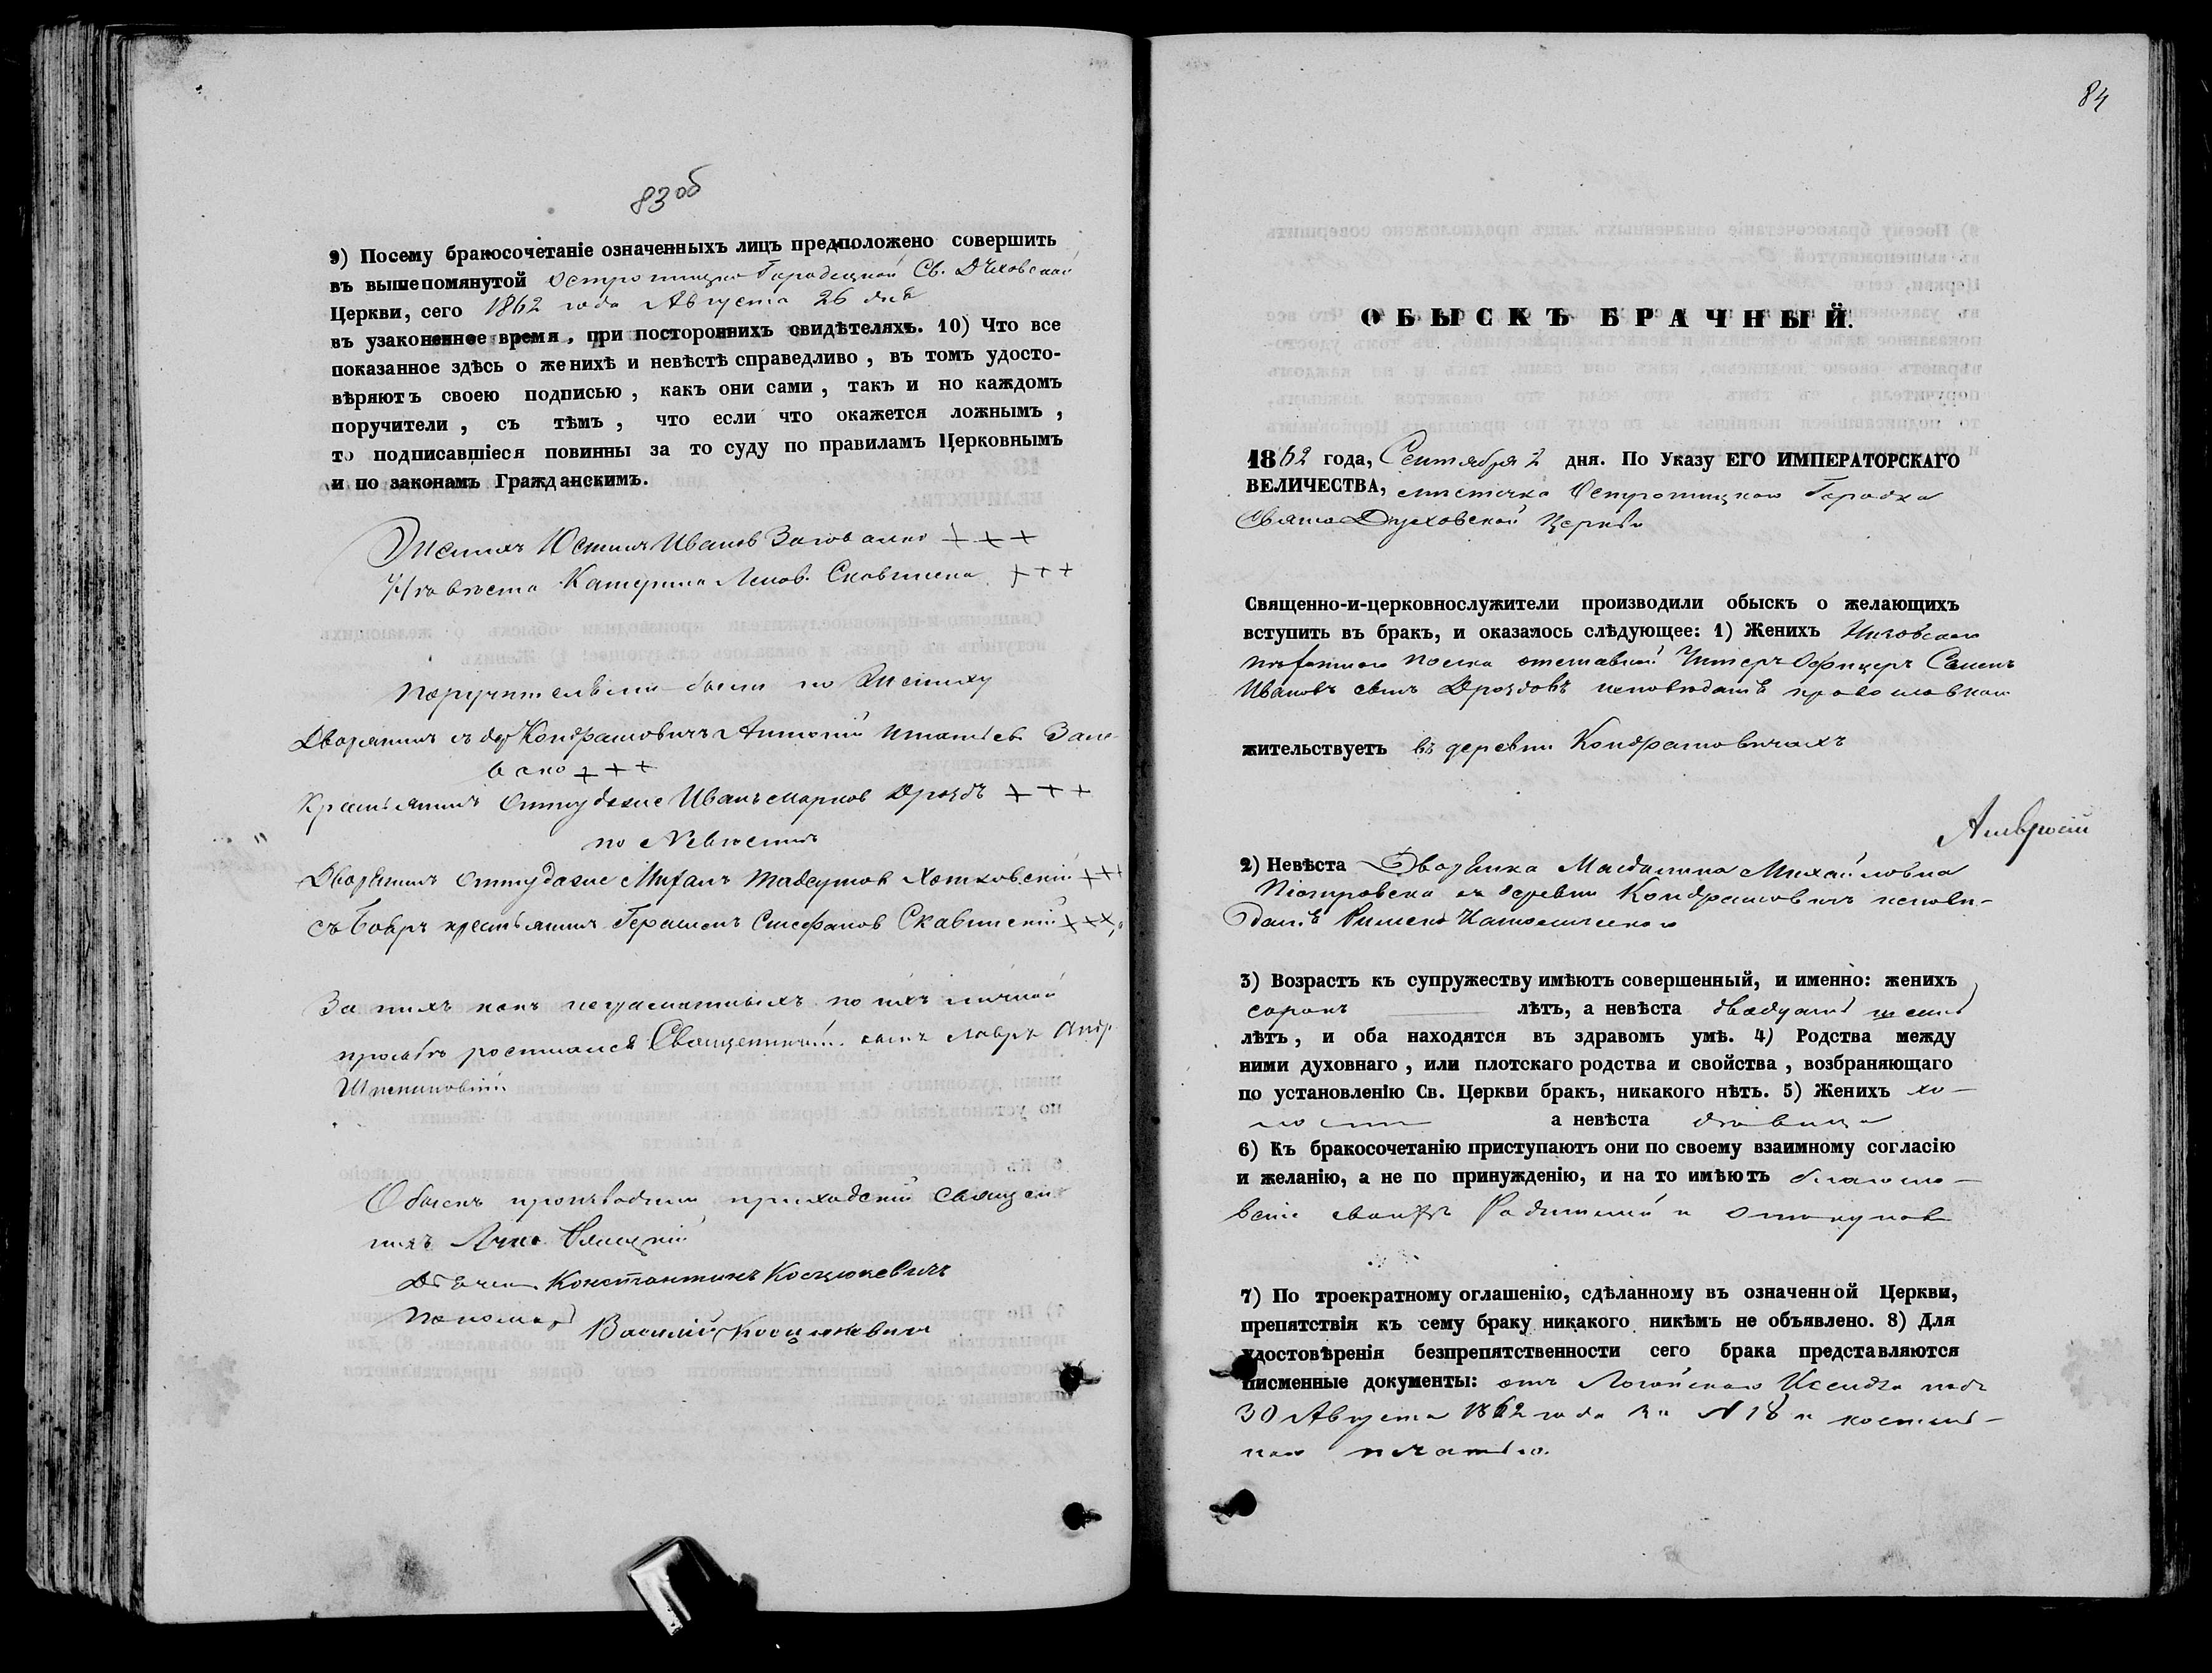 83 об
9) Посему бракосочетаніе означенныхъ лицъ предположено совершить
въ вышепомянутой Острошицко Городецкой Св. Духовской
Церкви, сего 1862 года Августа 26 дня
въ узаконенное время, при постороннихъ свидѣтеляхъ. 10) Что все
показанное здѣсь о женихѣ и невѣстѣ справедливо, въ томъ удосто-
вѣряютъ своею подписью, какъ они сами, такъ и но каждомъ
поручители, съ тѣмъ, что если что окажется ложнымъ,
то подписавшіеся повинны за то суду по правиламъ Церковнымъ
и по законамъ Гражданскимъ.
Женихъ Юстинъ Иванов +++
Невѣста Катерина +++
Поручительѣми были по Жениху
Дворянинъ съ дер Кондратовичъ Антоній
+++
Крестьянинъ Оттудаже Иванъ Марков Дроздъ +++
по Невѣстѣ
Дворянинъ оттудаже Михаилъ Хотковскій +++
крестьянинъ Герасимъ Стефанов Скавинскій +++
За нихъ какъ неграмотныхъ по ихъ личной
прозьбѣ росписался Священнич. сынъ Лавръ Андр
Обыскъ производили приходскій священ
никъ
Дьячекъ Константинъ Косцюкевичъ
Пономарь Василій Косцюкевичъ
84
ОБЫСКЪ БРАЧНЫЙ.
1862 года, Сентября 2 дня. По Указу ЕГО ИМПЕРАТОРСКАГО
ВЕЛИЧЕСТВА, мѣстечка Острошицкаго Городка
Свято Духовской Церкви
Священно-и-церковнослужители производили обыскъ о желающихъ
вступить въ бракъ, и оказалось слѣдующее: 1) Женихъ
полка отставной Унтеръ Офицеръ Семенъ
Ивановъ сынъ Дроздовъ исповѣданія православнаго
жительствуетъ въ деревни Кондратовичахъ
Амвросій
2) Невѣста Дворянка Магдалина Михайловна
Піотровска съ деревни Кондратовичъ исповѣ-
данія Римско Католическаго
3) Возрастъ къ супружеству имѣютъ совершенный, и именно: женихъ
сорокъ лѣтъ, а невѣста двадцать шесть
лѣтъ, и оба находятся въ здравомъ умѣ. 4) Родства между
ними духовнаго, или плотскаго родства и свойства, возбраняющаго
по установленію Св. Церкви бракъ, никакого нѣтъ. 5) Женихъ хо-
лостъ а невѣста дѣвица
6) Къ бракосочетанію приступаютъ они по своему взаимному согласію
и желанію, а не по принужденію, и на то имѣютъ благосло-
веніе своихъ Родителей и опекунов
7) По троекратному оглашенію, сдѣланному въ означенной Церкви,
препятствія къ сему браку никакого никѣмъ не объявлено. 8) Для
удостовѣренія безпрепятственности сего брака представляются
писменные документы: отъ Логойскаго Ксендза подъ
30 Августа 1862 года за N 18 и костель-
ною печатью.